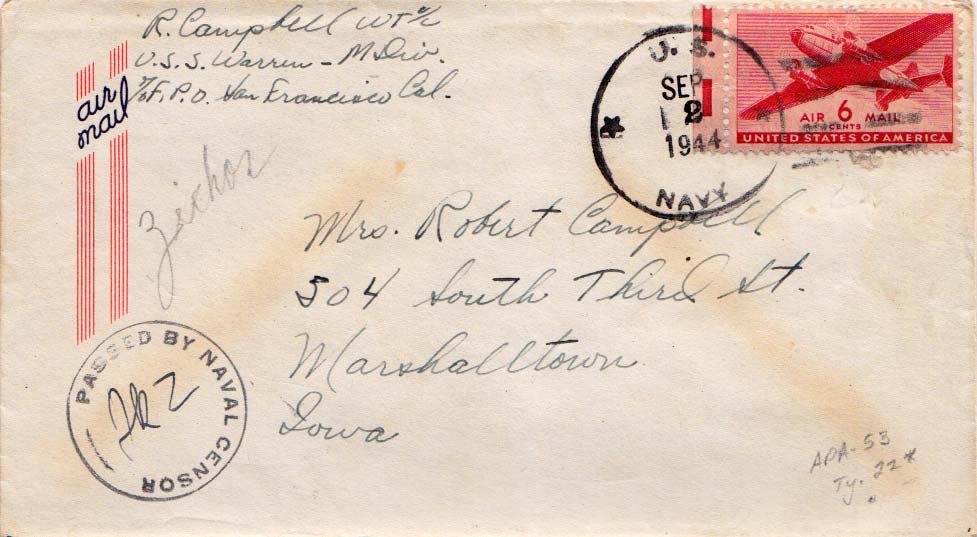 R. Campbell WT 2/c
U.S.S. Warren - M Div.
c/o F.P.O. San Francisco Cal.
air
mail
U. S.
SEP
12
1944
NAVY
AIR 6 MAIL
CENTS
UNITED STATES OF AMERICA
Mrs. Robert Campbell
504 South Third St.
Marshalltown
Iowa
PASSED BY NAVAL CENSOR
APA-53
Ty. 22*